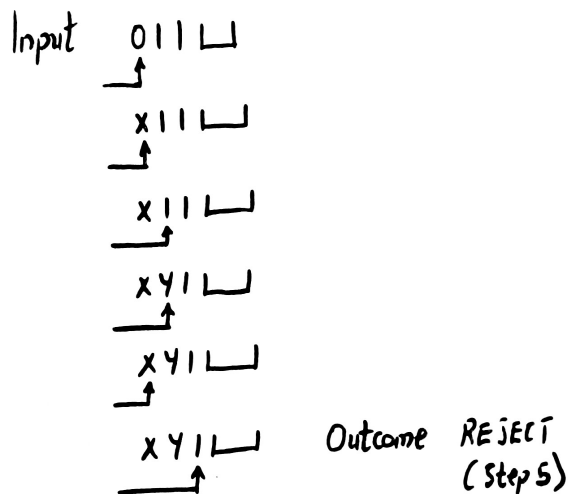 Input 011⊔
X11⊔
X11⊔
XY1⊔
XY1⊔
XY1⊔ Outcome REJECT
(Step 5)